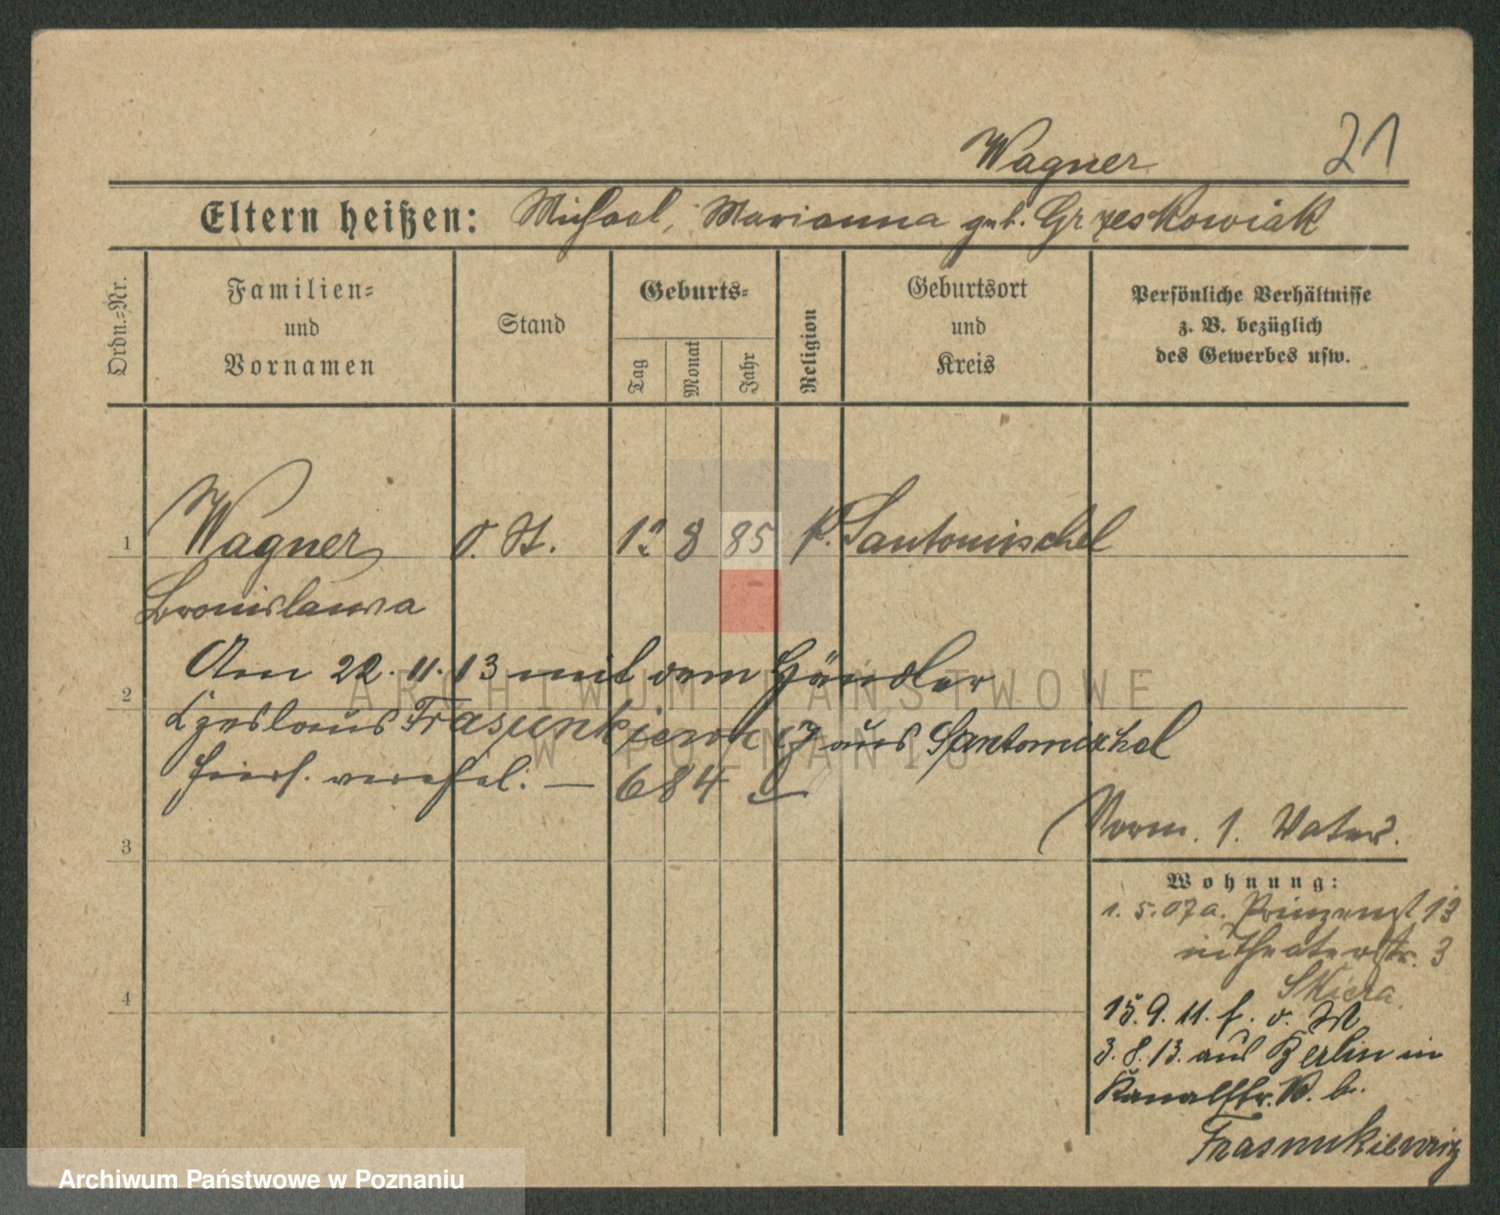 Wagner 21
Eltern heißen: Michael, Marianna geb. Grzeskowiak
Ordn.=Nr.
Familien=
und
Vornamen
Stand
Geburts=
Tag
Monat
Jahr
Religion
Geburtsort
und
Kreis
Persönliche Verhältnisse
z. B. bezüglich
des Gewerbes usw.
1 Wagner o. St. 8 85 k. Santomischel
Bronislawa
Am 22.11.13 mit dem Händler
2
Czeslaus aus Santomischel
hiers. verehel. — 684
Vorm. 1. Vater.
3
Wohnung:
1.5.07 a. 13
Theaterstr. 3
Skiera.
4
15.9.11. f. o. M
3.8.13. aus Berlin in
Kanalstr. b.
ARCHIWUM PAŃSTWOWE
W POZNANIU
Archiwum Państwowe w Poznaniu